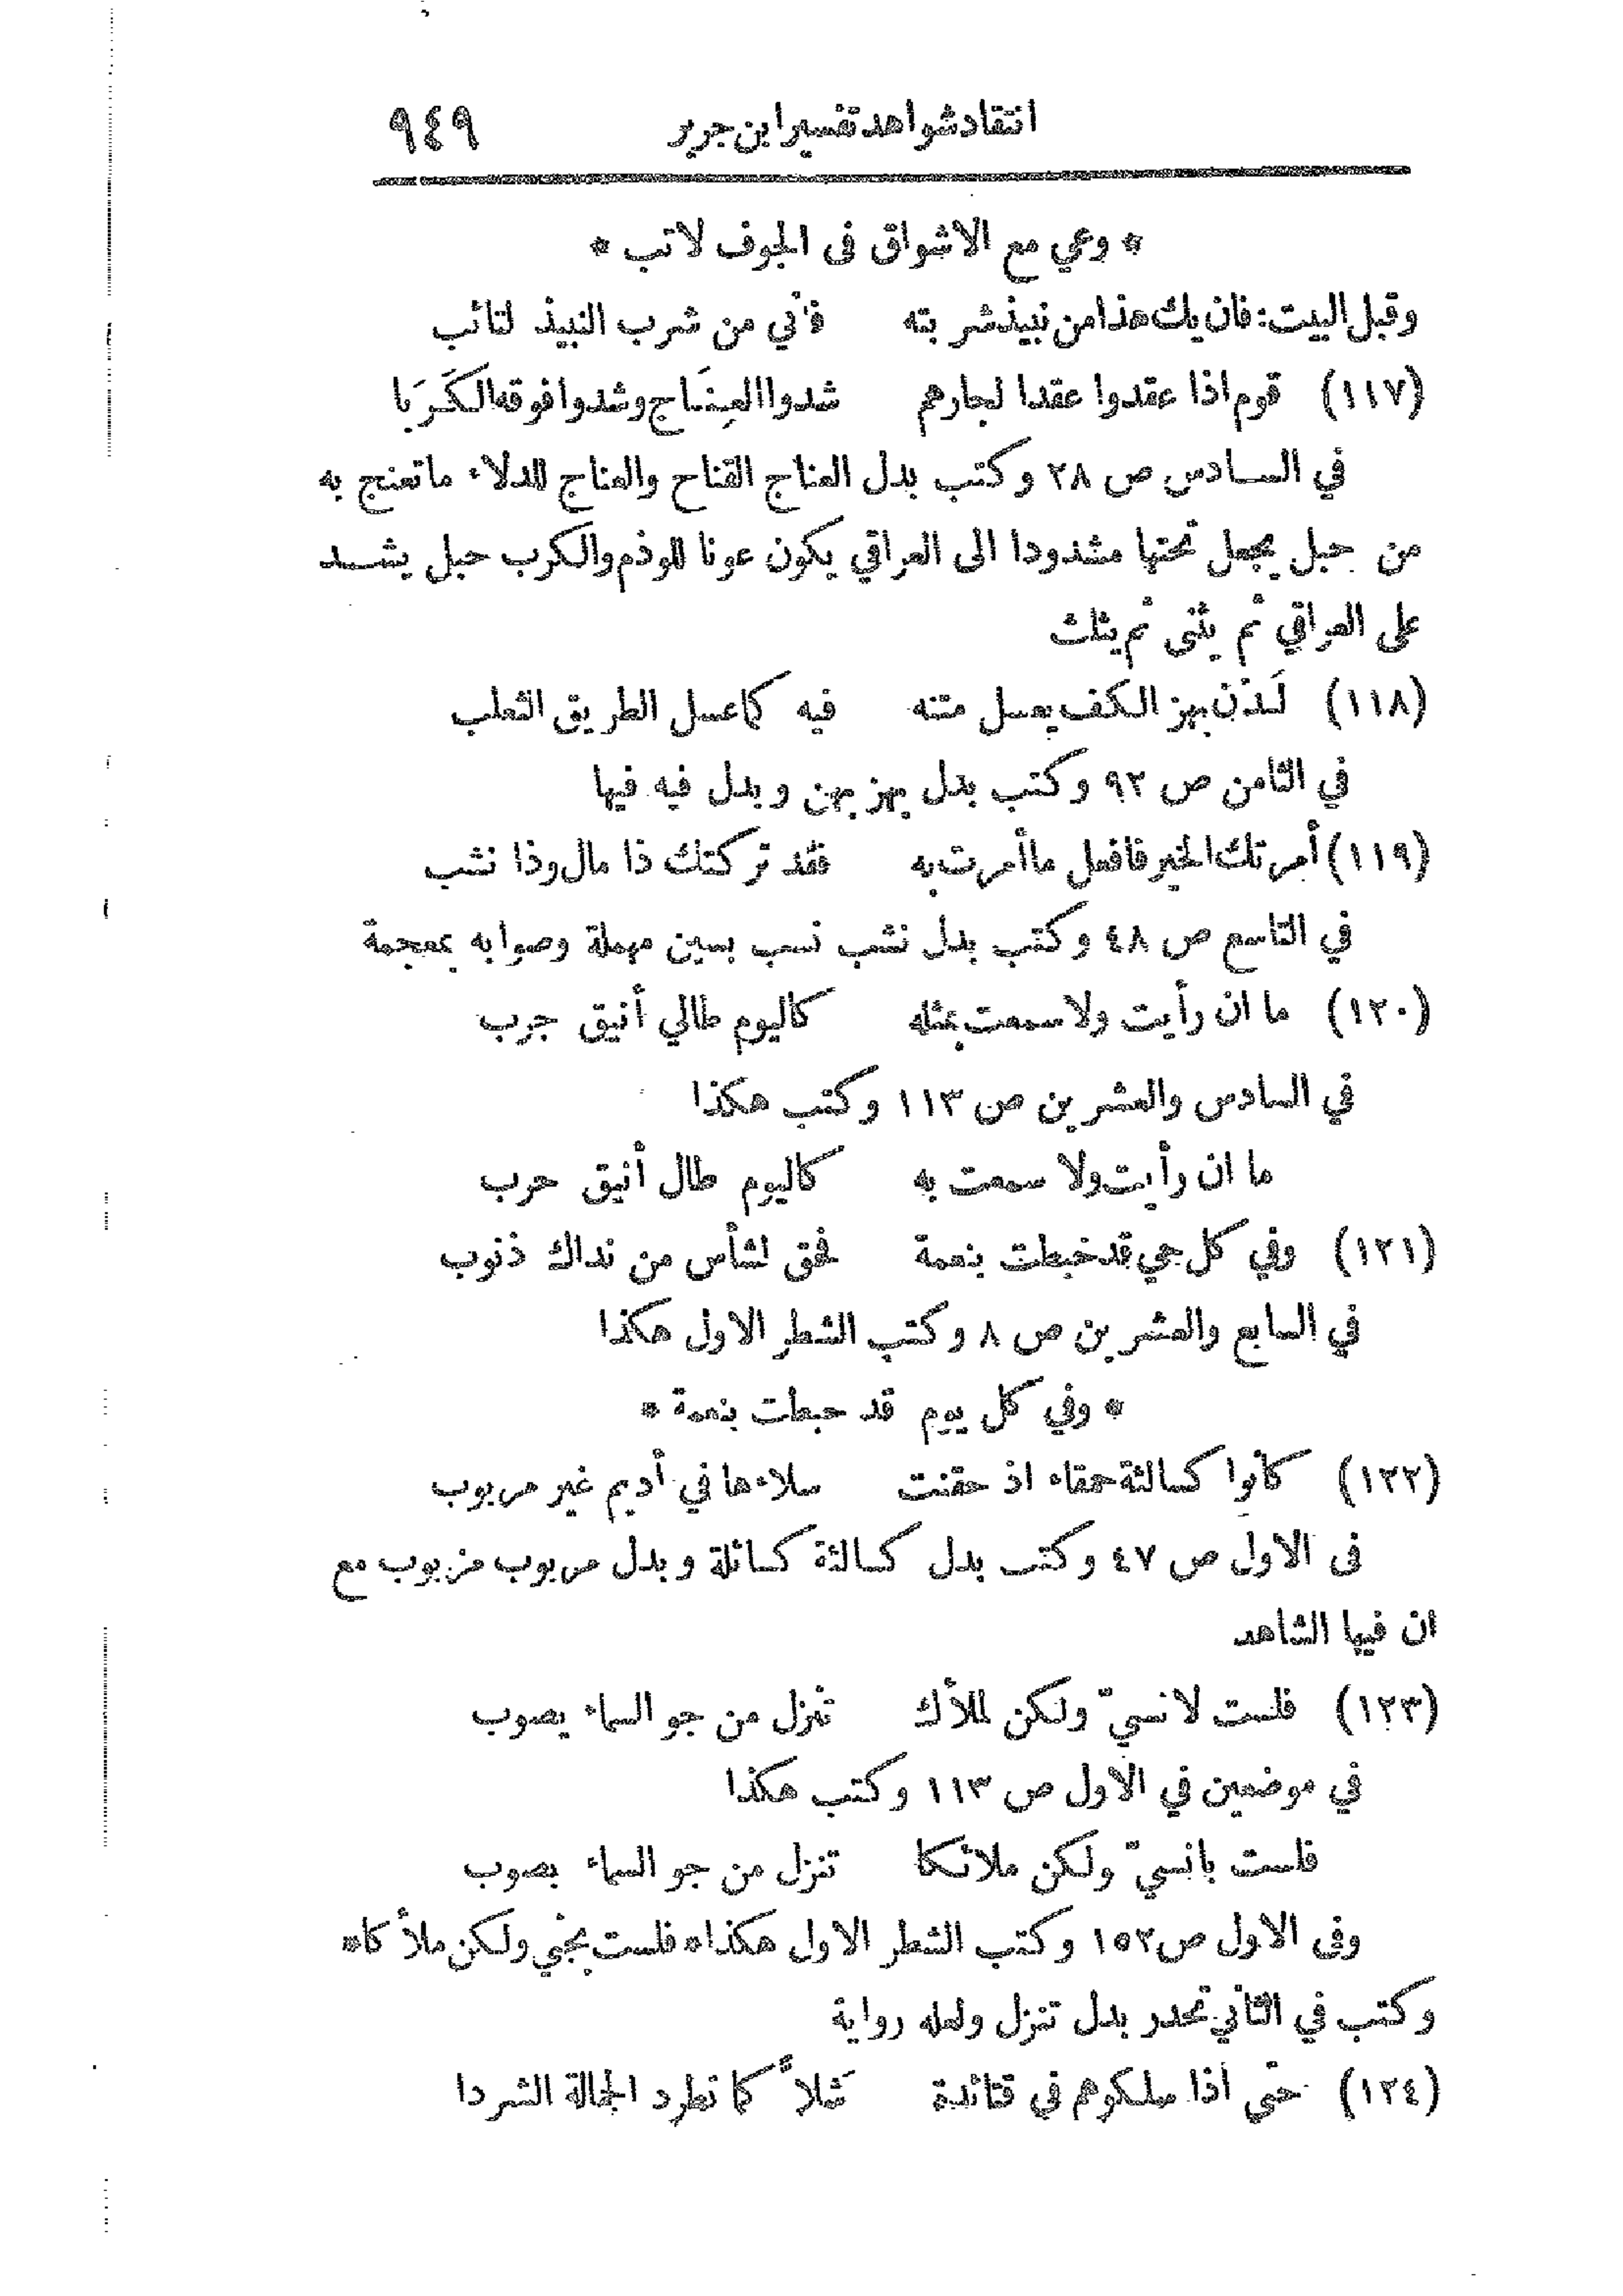 انتقاد شواهد تفسير ابن جرير ٩٤٩
* وعي مع الاشواق فى الجوف لاتب *
وقبل البيت: فان يك هذا من نبيذ شربته فاني من شرب النبيذ لتائب
(١١٧) قوم اذا عقدوا عقدا لجارهم شدوا العِنَاج وشدوا فوقه الكَرَبا
في السادس ص ٢٨ وكتب بدل العناج القناح والعناج للدلاء ماتعنج به
من حبل يجعل تحتها مشدودا الى العراقي يكون عونا للوذم والكرب حبل يشد
على العراقي ثم يثنى ثم يثلث
(١١٨) لَدْن بهز الكف يعسل متنه فيه كما عسل الطريق الثعلب
في الثامن ص ٩٢ وكتب بدل بهز بهن وبدل فيه فيها
(١١٩) أمرتك الخير فافعل ما أمرت به فقد تركتك ذا مال وذا نشب
في التاسع ص ٤٨ وكتب بدل نشب نسب بسين مهملة وصوابه بمعجمة
(١٢٠) ما ان رأيت ولا سمعت بمثله كاليوم طالي أنيق جرب
في السادس والعشرين ص ١١٣ وكتب هكذا
ما ان رأيت ولا سمعت به كاليوم طال أنيق حرب
(١٢١) وفي كل حي قد خبطت بنعمة فحق لشأس من نداك ذنوب
في السابع والعشرين ص ٨ وكتب الشطر الاول هكذا
* وفي كل يوم قد حبطت بنعمة *
(١٢٢) كانوا كسالئة حمقاء اذ حقنت سلاءها في أديم غير مربوب
فى الاول ص ٤٧ وكتب بدل كسالئة كسائلة وبدل مربوب مزبوب مع
ان فيها الشاهد
(١٢٣) فلست لانسيّ ولكن لملأك تنزل من جو السماء يصوب
في موضعين في الاول ص ١١٣ وكتب هكذا
فلست بانسيّ ولكن ملائكا تنزل من جو السماء يصوب
وفى الاول ص ١٥٢ وكتب الشطر الاول هكذا * فلست بجني ولكن ملأكا *
وكتب في الثاني تحدر بدل تنزل ولعله رواية
(١٢٤) حتى اذا سلكوهم في قتائدة شلاً كما تطرد الجمالة الشردا